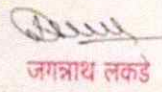 जगन्नाथ लकडे